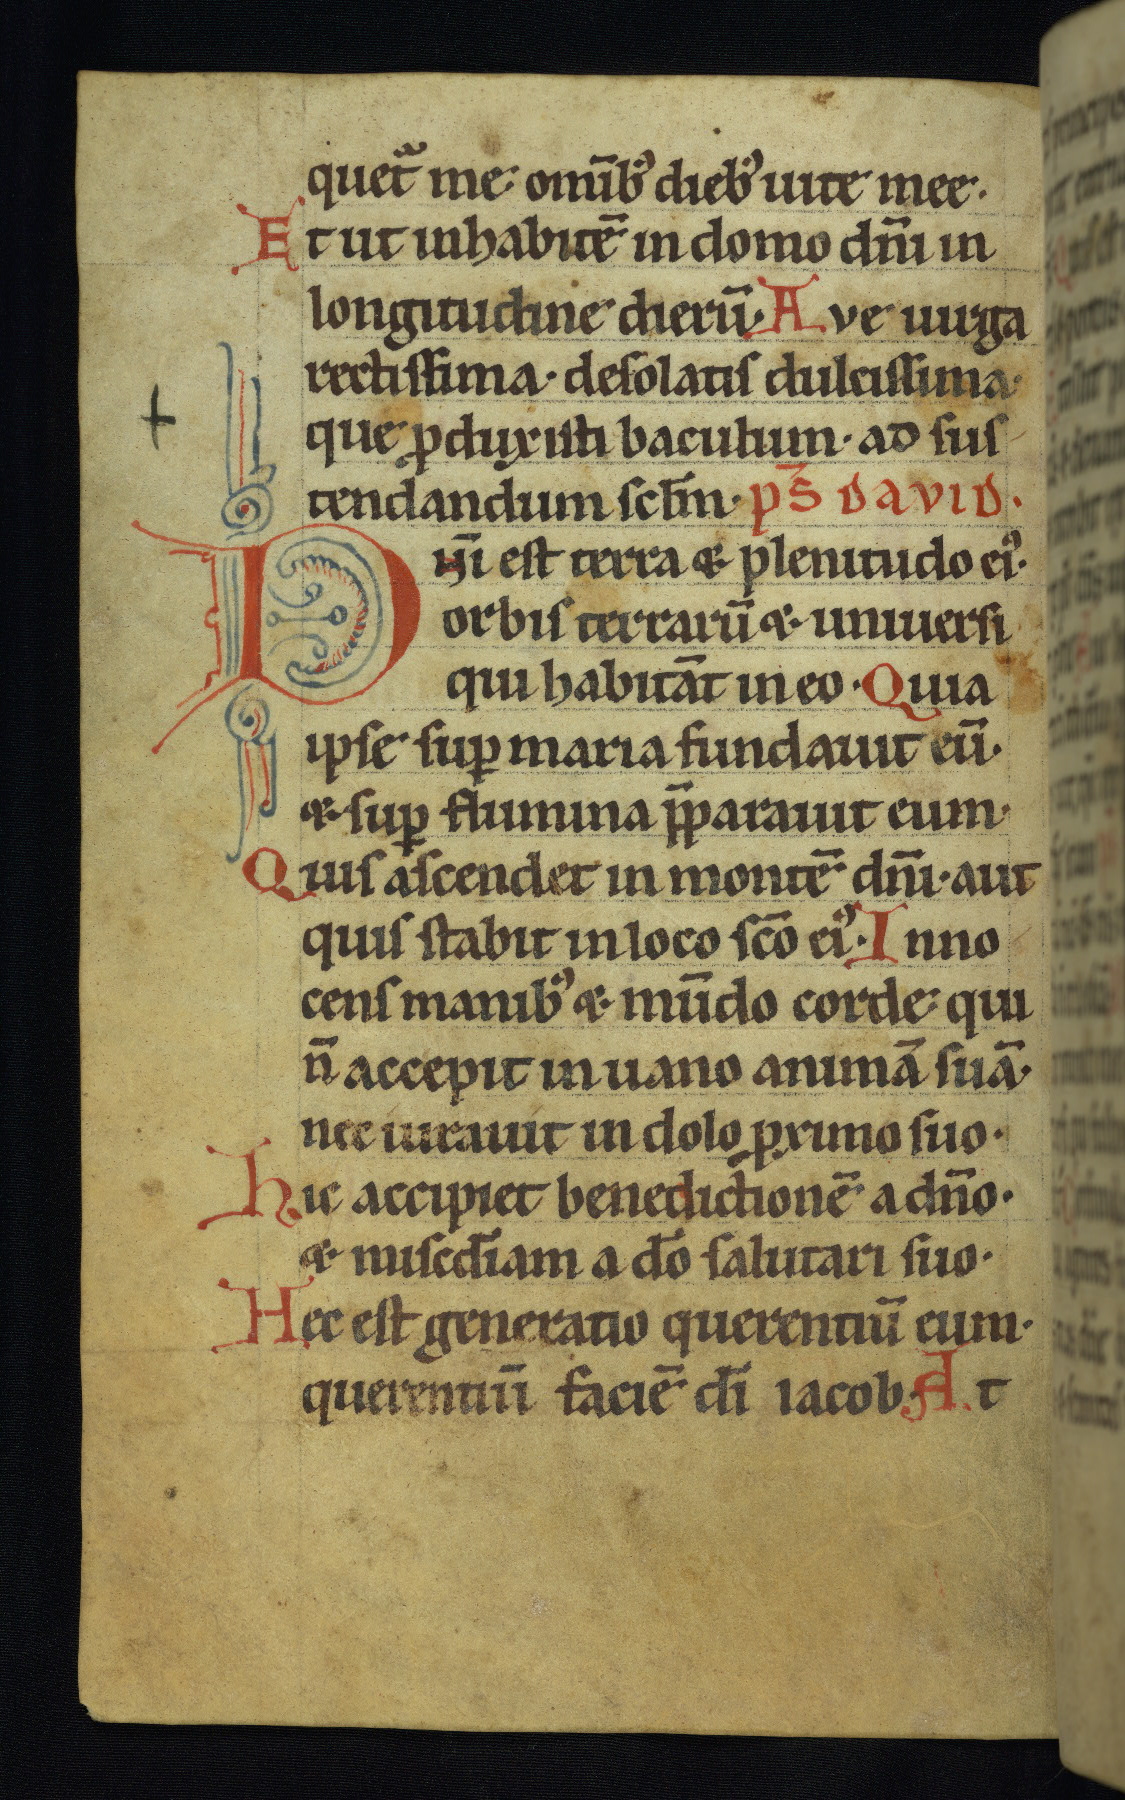 quet᷑ me· omībꝰ diebꝰ uite mee·
Et ut inhabitē in domo dn̄i in
longitudine dierū· Ave uirga
rectissima· desolatis dulcissima·
que ꝓduxisti baculum· ad sus
tendandum scl̄m· ps̄ david·
Dn̄i est terra ⁊ plenitudo eiꝰ·
orbis terrarū ⁊ uniuersi
qui habitāt in eo· Quia
ipse suꝑ maria fundauit eū·
⁊ suꝑ flumina p̄parauit eum·
Quis ascendet in montē dn̄i· aut
quis stabit in loco sc̄o eiꝰ· Inno
cens manibꝰ ⁊ mūdo corde· qui
n̄ accepit in uano animā suā·
nec iurauit in dolo ꝓximo suo·
hic accipiet benedictionē a dn̄o·
⁊ misc̄diam a d̄o salutari suo·
Hec est generatio querentiū eum·
querentiū faciē d̄i iacob· At